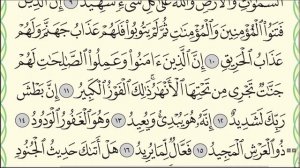 السَّمَٰوَٰتِ وَالْأَرْضِ وَاللَّهُ عَلَىٰ كُلِّ شَىْءٍ شَهِيدٌ ٩ إِنَّ الَّذِينَ
فَتَنُوا۟ الْمُؤْمِنِينَ وَالْمُؤْمِنَٰتِ ثُمَّ لَمْ يَتُوبُوا۟ فَلَهُمْ عَذَابُ جَهَنَّمَ وَلَهُمْ
عَذَابُ الْحَرِيقِ ١٠ إِنَّ الَّذِينَ ءَامَنُوا۟ وَعَمِلُوا۟ الصَّٰلِحَٰتِ لَهُمْ
جَنَّٰتٌ تَجْرِى مِن تَحْتِهَا الْأَنْهَٰرُ ذَٰلِكَ الْفَوْزُ الْكَبِيرُ ١١ إِنَّ بَطْشَ
رَبِّكَ لَشَدِيدٌ ١٢ إِنَّهُۥ هُوَ يُبْدِئُ وَيُعِيدُ ١٣ وَهُوَ الْغَفُورُ الْوَدُودُ ١٤
ذُو الْعَرْشِ الْمَجِيدُ ١٥ فَعَّالٌ لِّمَا يُرِيدُ ١٦ هَلْ أَتَىٰكَ حَدِيثُ الْجُنُودِ